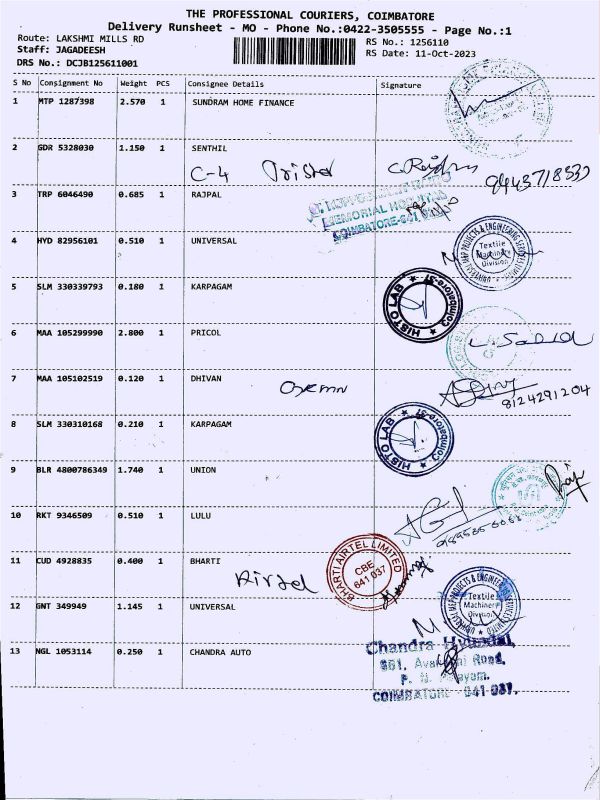 THE PROFESSIONAL COURIERS, COIMBATORE
Delivery Runsheet - MO - Phone No.:0422-3505555 - Page No.:1
Route: LAKSHMI MILLS RD
RS No.: 1256110
Staff: JAGADEESH
RS Date: 11-Oct-2023
DRS No.: DCJB125611001
S No Consignment No Weight PCS Consignee Details Signature
1 MTP 1287398 2.570 1 SUNDRAM HOME FINANCE
2 GDR 5328030 1.150 1 SENTHIL
C-4
3 TRP 6046490 0.685 1 RAJPAL
MEMORIAL HOSPITAL
COIMBATORE-641
4 HYD 82956101 0.510 1 UNIVERSAL
UNIVERSAL MEP PRODUCTS & ENGINEERING SERVICES LIMITED
Textile
Machinery
Division
5 SLM 330339793 0.180 1 KARPAGAM
HISTO LAB Coimbatore-37
6 MAA 105299990 2.800 1 PRICOL
7 MAA 105102519 0.120 1 DHIVAN
8124291204
8 SLM 330310168 0.210 1 KARPAGAM
HISTO LAB Coimbatore-37
9 BLR 4800786349 1.740 1 UNION
10 RKT 9346509 0.510 1 LULU
11 CUD 4928835 0.400 1 BHARTI
Airtel
BHARTI AIRTEL LIMITED
CBE
641 037
12 GNT 349949 1.145 1 UNIVERSAL
UNIVERSAL MEP PRODUCTS & ENGINEERING SERVICES LIMITED
Textile
Machinery
Division
13 NGL 1053114 0.250 1 CHANDRA AUTO
Chandra Hyundai,
Road,
COIMBATORE - 641 037.